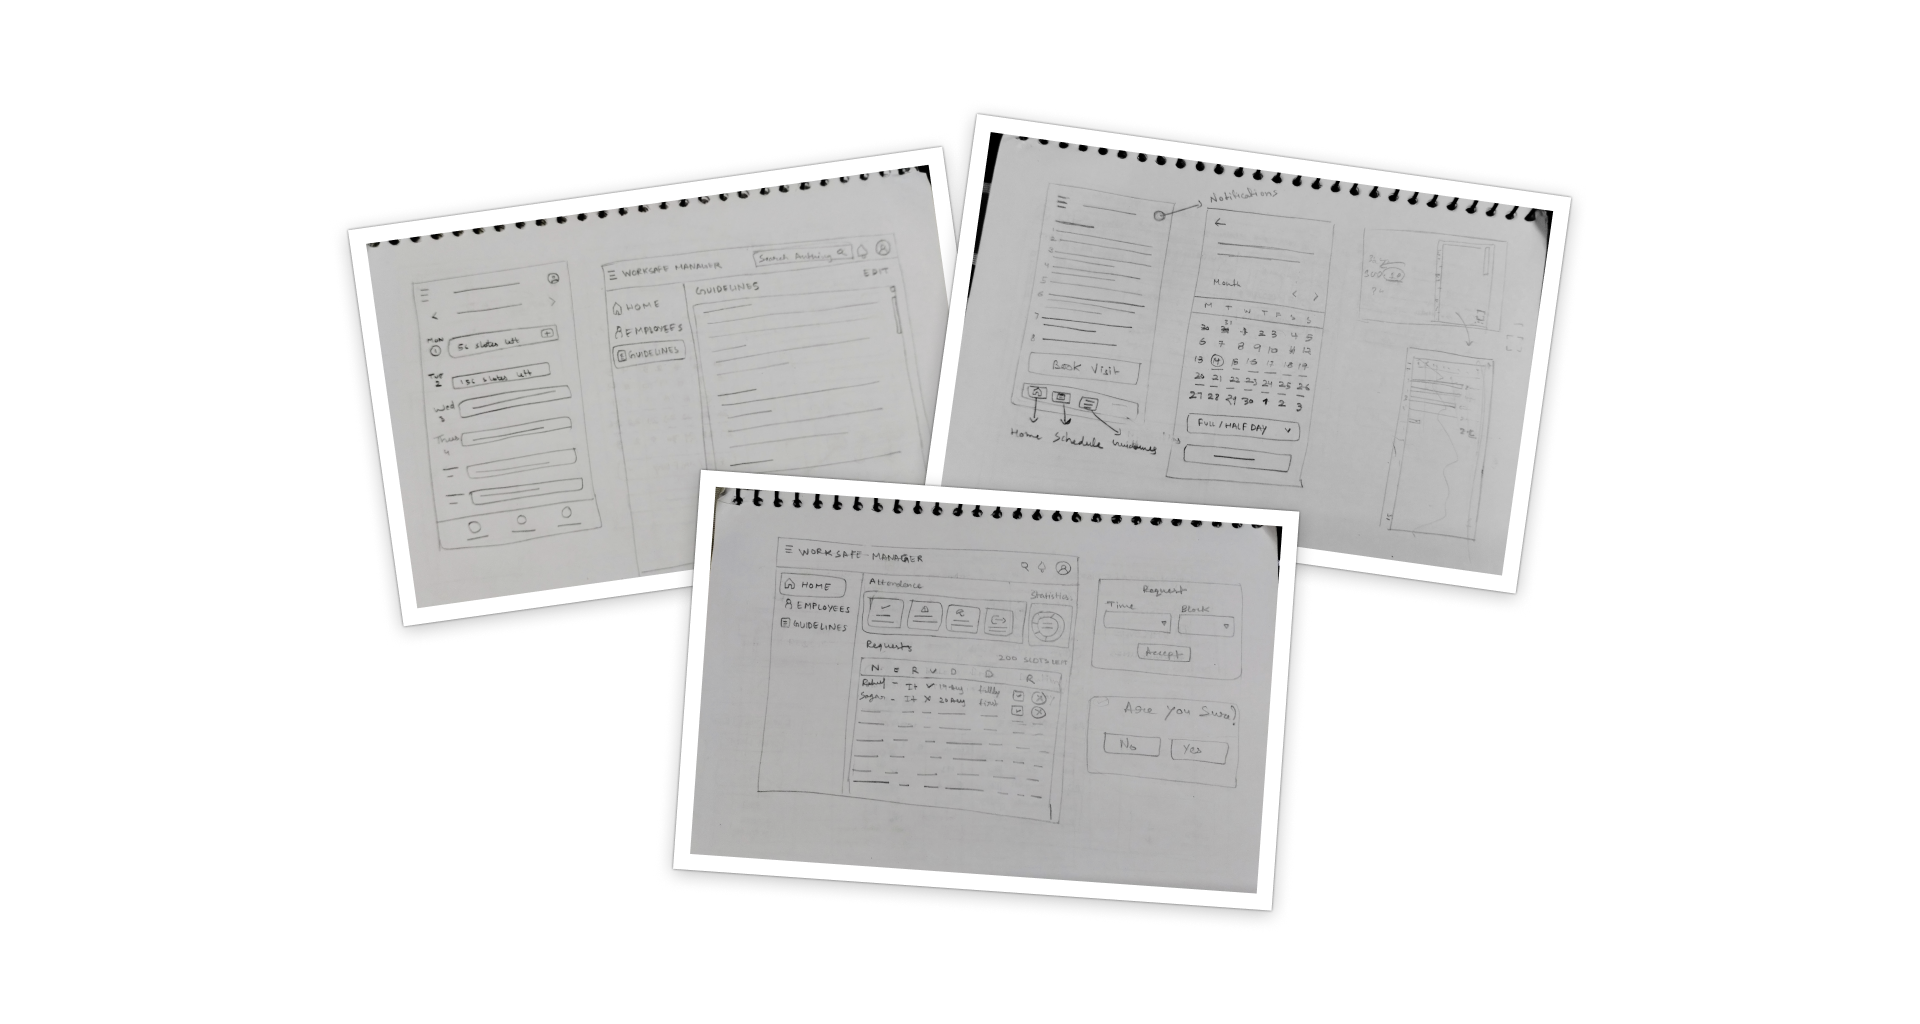 MON
1
56 slots left
TUE
2
156 slots left
Wed
3
Thus
4
WORKSAFE MANAGER
Search Anthing
EDIT
HOME
EMPLOYEES
GUIDELINES
GUIDELINES
Notifications
1
2
3
4
5
6
7
8
Book Visit
Home Schedule Guidelines
Month
< >
M T W T F S S
30 31 1 2 3 4 5
6 7 8 9 10 11 12
13 14 15 16 17 18 19
20 21 22 23 24 25 26
27 28 29 30 1 2 3
FULL / HALF DAY
WORKSAFE - MANAGER
HOME
EMPLOYEES
GUIDELINES
Attendence
Statistics
Requests
200 SLOTS LEFT
N E R V D D R
Rahul - It 19 Aug
Sagar - It 20 Aug
Request
Time
Block
Accept
Are You Sure?
No
Yes